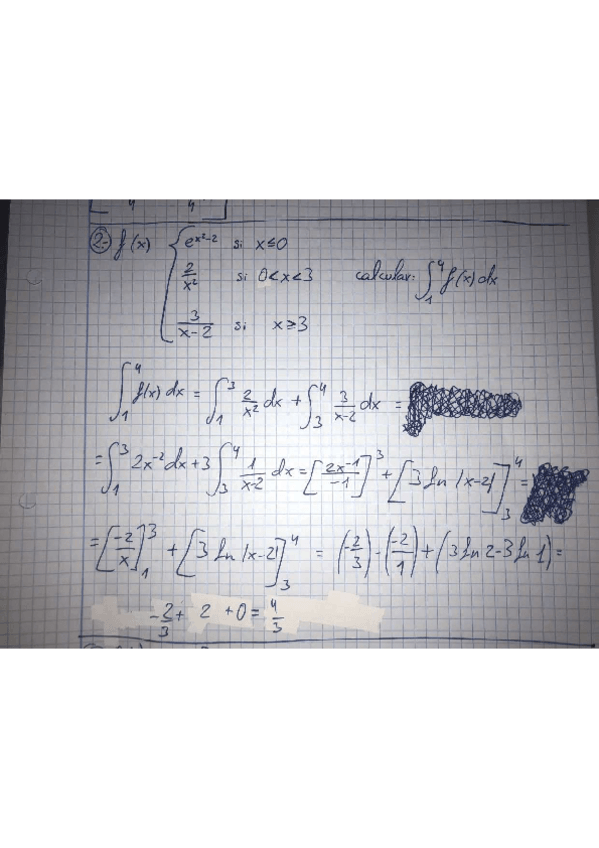 4 4
2.- f(x) { e^{x²-2} si x≤0
2/x² si 0<x<3 calcular: ∫₁⁴ f(x) dx
3/(x-2) si x≥3
∫₁⁴ f(x) dx = ∫₁³ 2/x² dx + ∫₃⁴ 3/(x-2) dx =
= ∫₁³ 2x⁻² dx + 3 ∫₃⁴ 1/(x-2) dx = [2x⁻¹/-1]³ + [3 ln |x-2|]₃⁴ =
= [-2/x]₁³ + [3 ln |x-2|]₃⁴ = (-2/3) - (-2/1) + (3 ln 2 - 3 ln 1) =
-2/3 + 2 + 0 = 4/3